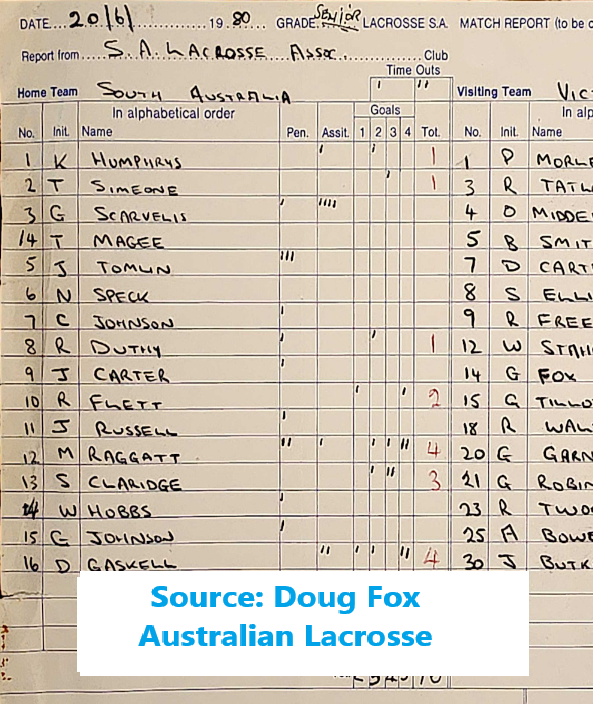 DATE 20/6/ 19 80 GRADE Senior LACROSSE S.A. MATCH REPORT (to be
Report from S. A. LACROSSE ASSOC. Club
Time Outs
Home Team SOUTH AUSTRALIA ' '' Visiting Team VIC
In alphabetical order Goals In alp
No. Init. Name Pen. Assit. 1 2 3 4 Tot. No. Init. Name
1 K HUMPHRYS ' ' 1 1 P MORL
2 T SIMEONE ' 1 3 R TATL
3 G SCARVELIS ' '''' 4 D MIDDE
14 T MAGEE 5 B SMIT
5 J TOMLIN ''' 7 D CART
6 N SPECK 8 S ELLI
7 C JOHNSON ' 9 R FREE
8 R DUTHY ' ' 1 12 W STAH
9 J CARTER ' 14 G FOX
10 R FLETT ' ' 2 15 G TILLO
11 J RUSSELL ' 18 R WAL
12 M RAGGATT '' ' ' ' '' 4 20 G GARN
13 S CLARIDGE ' '' 3 21 G ROBIN
W HOBBS ' 23 R TWO
15 G JOHNSON ' 25 A BOWE
16 D GASKELL '' ' ' '' 4 30 J BUTK
Source: Doug Fox
Australian Lacrosse